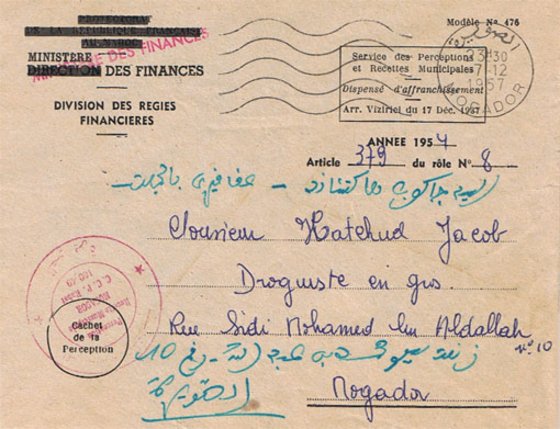 PROTECTORAT
DE LA RÉPUBLIQUE FRANÇAISE
AU MAROC
MINISTÈRE DES FINANCES
MINISTÈRE
DIRECTION DES FINANCES
DIVISION DES REGIES
FINANCIÈRES
Modèle No 476
Service des Perceptions
et Recettes Municipales
Dispensé d'affranchissement
Arr. Viziriel du 17 Déc. 1937
الصويرة
30
7-12
1957
MOGADOR
ANNÉE 1957
Article 379 du rôle No 8
السيد جاكوب
Monsieur Hatchud Jacob
Droguiste en gros
Rue Sidi Mohamed ben Abdallah no 10
زنقة سيدي محمد بن عبد الله رقم 10
الصويرة
Mogador
C. C. P. Rabat
MOGADOR
Cachet
de la
Perception